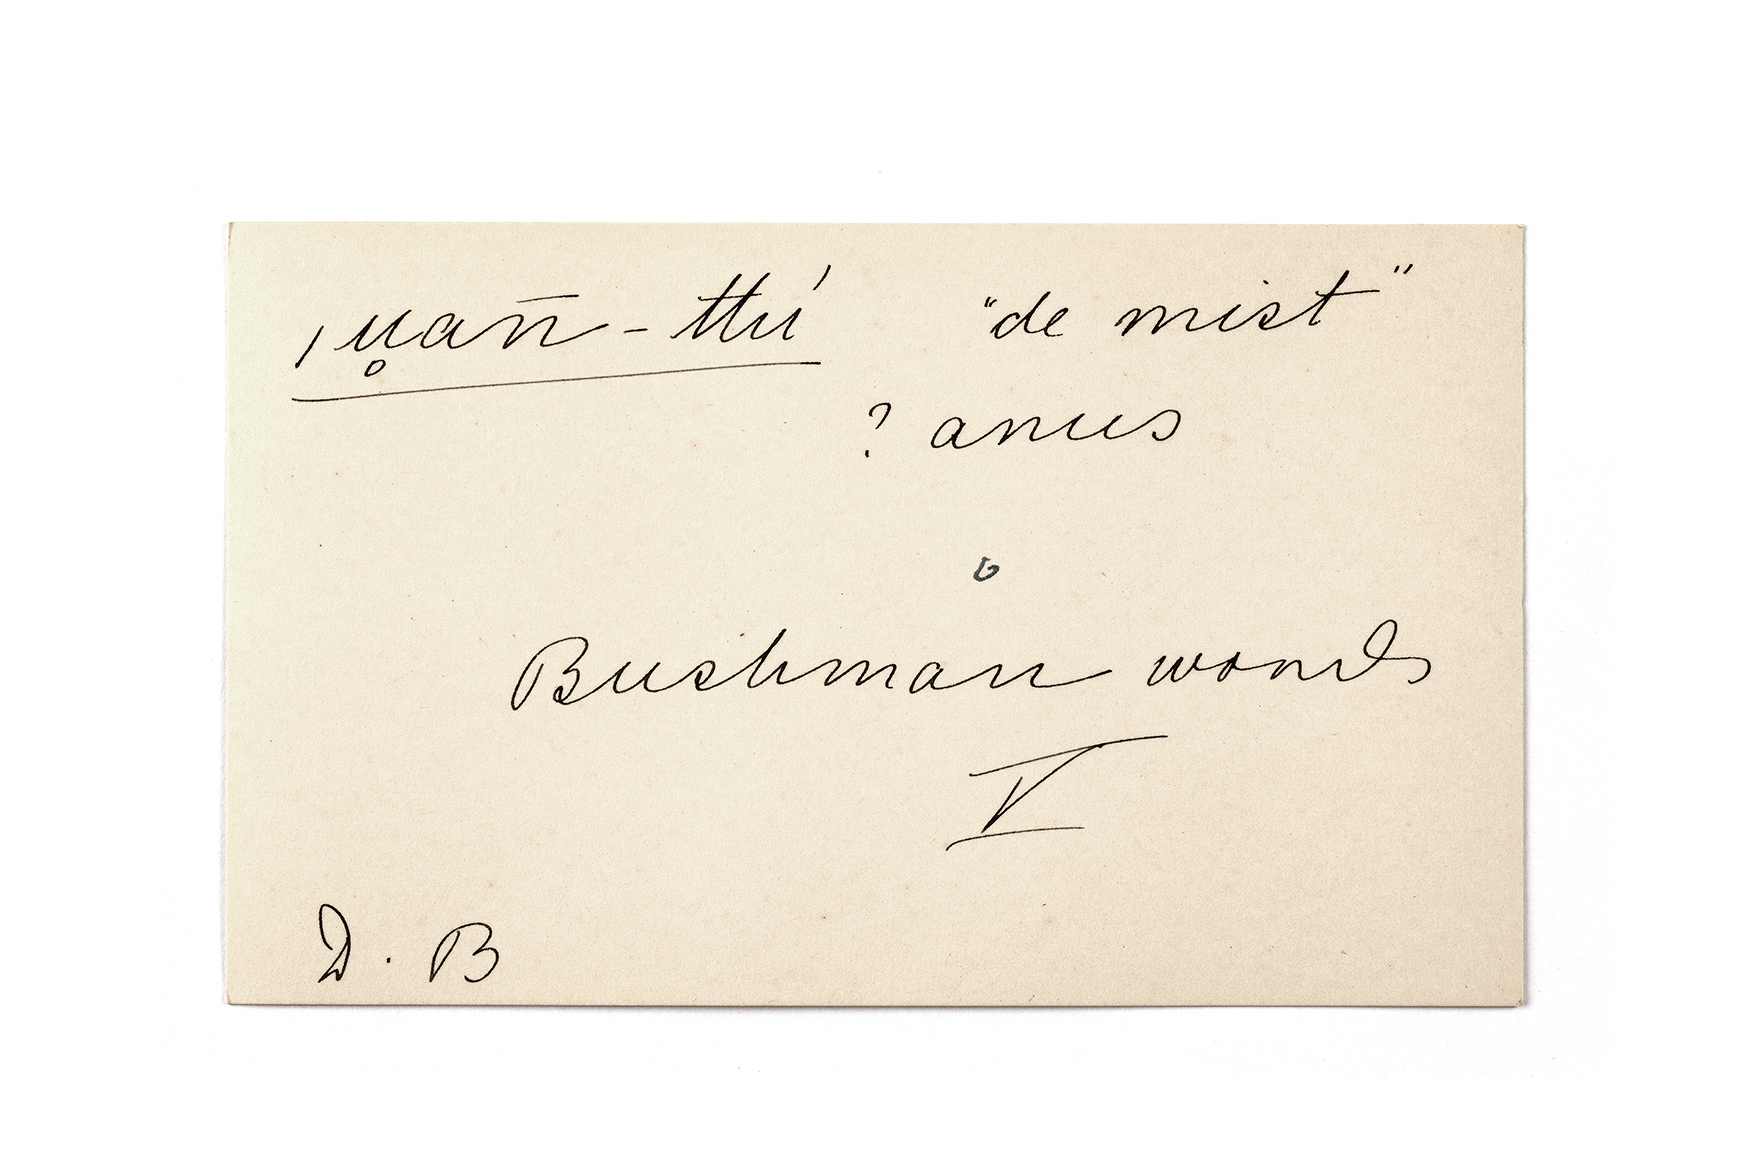 ıu̥an̄-ttú "de mist"
? anus
Bushman words
V
D. B